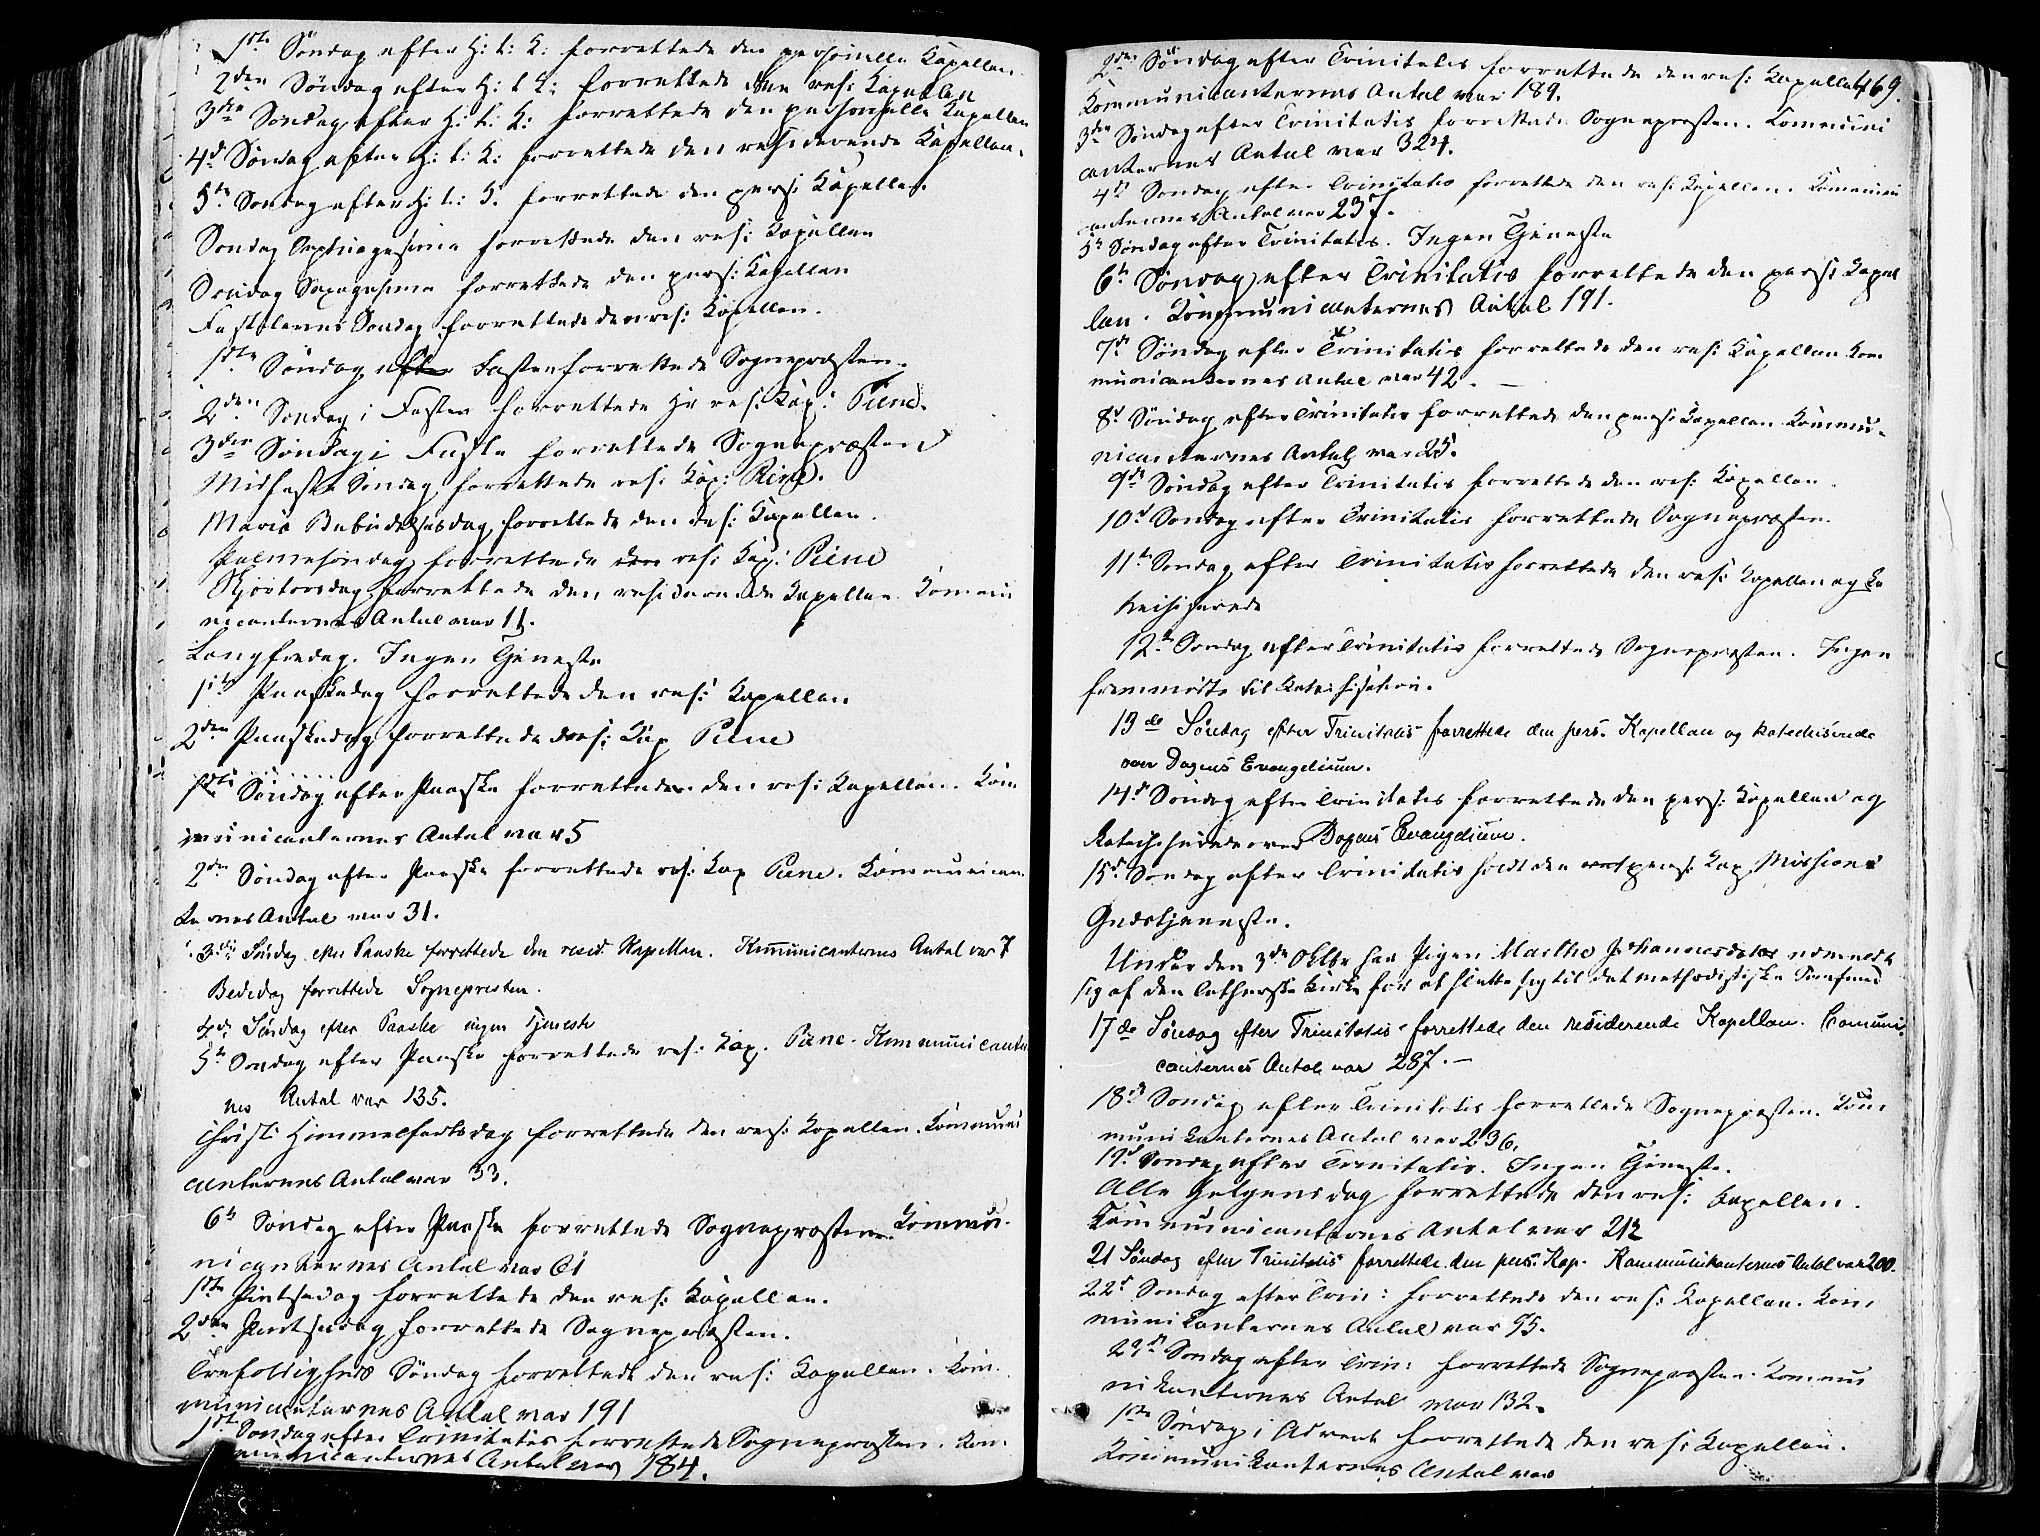 1ste Søndag efter H: t: K: forrettede den personelle Kapellan.
2den Søndag efter H: t K: forrettede den res: Kapellan
3die Søndag efter H: t: K: forrettede den personelle Kapellan
4de Søndag efter H: t: K: forrettede den residerende Kapellan.
5te Søndag efter H: t: K: forrettede den pers: Kapellan.
Søndag Septuagesima forrettede den res: Kapellan
Søndag Sexagesima forrettede den pers: Kapellan
Fastelavns Søndag forrettede den res: Kapellan.
1ste Søndag efter Fasten forrettede Sognepræsten.
2den Søndag i Fasten forrettede Hr res: Kap: Piene.
3die Søndag i Faste forrettede Sognepræsten
Midfaste Søndag forrettede res: Kap: Piene.
Mariæ Bebudelsesdag forrettede den res: Kapellan.
Palmesøndag forrettede den res: Kap: Piene
Skjærtorsdag forrettede den residerende Kapellan. Kommu
nicanternes Antal var 11.
Langfredag. Ingen Tjeneste
1ste Paaskedag forrettede den res: Kapellan
2den Paaskedag forrettede res: Kap Piene
1ste Søndag efter Paaske forrettede den res: Kapellan. Kom
municanternes Antal var 5
2den Søndag efter Paaske forrettede res: Kap Piene. Kommunican
ternes Antal var 31.
3die Søndag efter Paaske forrettede den resid. Kapellan. Kommunicanternes Antal var 7
Bededag forrettede Sognepresten.
4de Søndag efter Paaske ingen Tjeneste
5te Søndag efter Paaske forrettede res: Kap. Piene. Kommunicanter
nes Antal var 135.
Christi Himmelfartsdag forrettede den res: Kapellan. Kommuni
canternes Antal var 33.
6te Søndag efter Paaske forrettede Sognepræsten. Kommu-
nicanternes Antal var 61
1ste Pintsedag forrettede den res: Kapellan.
2den Pintsedag forrettede Sognepræsten.
Trefoldigheds Søndag forrettede den res: Kapellan. Kom-
municanternes Antal var 191
1ste Søndag efter Trinitatis forrettede Sognepræsten. Kom-
municanternes Antal var 184.
469.
2den Søndag efter Trinitatis forrettede den res: Kapellan
Kommunicanternes Antal var 189.
3die Søndag efter Trinitatis forrettede Sognepræsten. Kommuni
canternes Antal var 324.
4de Søndag efter Trinitatis forrettede den res: Kapellan. Kommuni
canternes Antal var 237.
5te Søndag efter Trinitatis. Ingen Tjeneste
6te Søndag efter Trinitatis forrettede den pers: Kapel
lan. Kommunicanternes Antal 191.
7de Søndag efter Trinitatis forrettede den res: Kapellan Kom
municanternes Antal var 42. —
8de Søndag efter Trinitatis forrettede den pers: Kapellan Kommu-
nicanternes Antal var 25.
9de Søndag efter Trinitatis forrettede den res: Kapellan.
10de Søndag efter Trinitatis forrettede Sognepræsten.
11te Søndag efter Trinitatis forrettede den res: Kapellan og ka
tkisiserede
12te Søndag efter Trinitatis forrettede Sognepræsten. Ingen
fremmødte til Katekisation.
13de Søndag efter Trinitatis forrettede den pers. Kapellan og katechiserede
over Dagens Evangelium.
14de Søndag efter Trinitatis forrettede den pers: Kapellan og
katechiserede over Dagens Evangelium.
15de Søndag efter Trinitatis holdt den pers: Kap Missions
Gudstjeneste.
Under den 3die Oktbr har Pigen Marthe Johannesdatter udmeldt
sig af den lutherske Kirke for at slutte sig til det methodistiske Samfund
17de Søndag efter Trinitatis forrettede den residerende Kapellan. Comuni-
canternes Antal var 287. —
18de Søndag efter Trinitatis forrettede Sognepræsten. Kom-
munikanternes Antal var 236.
19de Søndag efter Trinitatis. Ingen Tjeneste.
Alle Helgens dag forrettede den res: Kapellan.
Kommunicanternes Antal var 212
21 Søndag efter Trinitatis forrettede den pers. Kap. Kommunikanternes Antal var 200.
22de Søndag efter Trin: forrettede den res: Kapellan. Kom-
munikanternes Antal var 95.
23de Søndag efter Trin: forrettede Sognepræsten. Kommu
nikanternes Antal var 132.
1ste Søndag i Advent forrettede den res: Kapellan.
Kommunikanternes Antal var